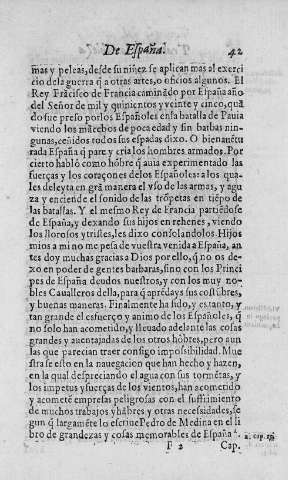 De España. 42
mas y peleas, desde su niñez se aplican mas al exerci
cio dela guerra q̃ a otras artes, o oficios algunos. El
Rey Frãcisco de Francia caminãdo por España año
del Señor de mil y quinientos y veynte y cinco, quã
do fue preso por los Españoles en la batalla de Pauia
viendo los mãcebos de poca edad y sin barbas nin-
gunas, ceñidos todos sus espadas dixo. O bienauẽtu
rada España q̃ pare y cria los hombres armados. Por
cierto habló como hõbre q̃ auia experimentado las
fuerças y los coraçones delos Españoles: a los qua-
les deleyta en grã manera el vso de las armas, y agu
za y enciende el sonido de las trõpetas en tiẽpo de
las batallas. Y el mesmo Rey de Francia partiẽdose
de España, y dexando sus hijos en rehenes, viendo
los llorosos y tristes, les dixo consolandolos. Hijos
mios a mi no me pesa de vuestra venida a España, an
tes doy muchas gracias a Dios por ello, q̃ no os de-
xo en poder de gentes barbaras, sino con los Princi
pes de España deudos nuestros, y con los muy no-
bles Caualleros della, para q̃ aprẽdays sus costũbres,
y buenas maneras. Finalmente ha sido, y es tanto, y
tan grande el esfuerço y animo de los Españoles, q̃
no solo han acometido, y lleuado adelante las cosas
grandes y auentajadas de los otros hõbres, pero aun
las que parecian traer consigo impossibilidad. Mue
strase esto en la nauegacion que han hecho y hazen,
en la qual despreciando el agua con sus tormẽtas, y
los impetus y fuerças de los vientos, han acometido
y acometẽ empresas peligrosas con el suffrimiento
de muchos trabajos y hãbres y otras necesidades, se
gun q̃ largamẽte lo escriue Pedro de Medina en el li
bro de grandezas y cosas memorables de España a.
a. cap.
F 2 Cap.